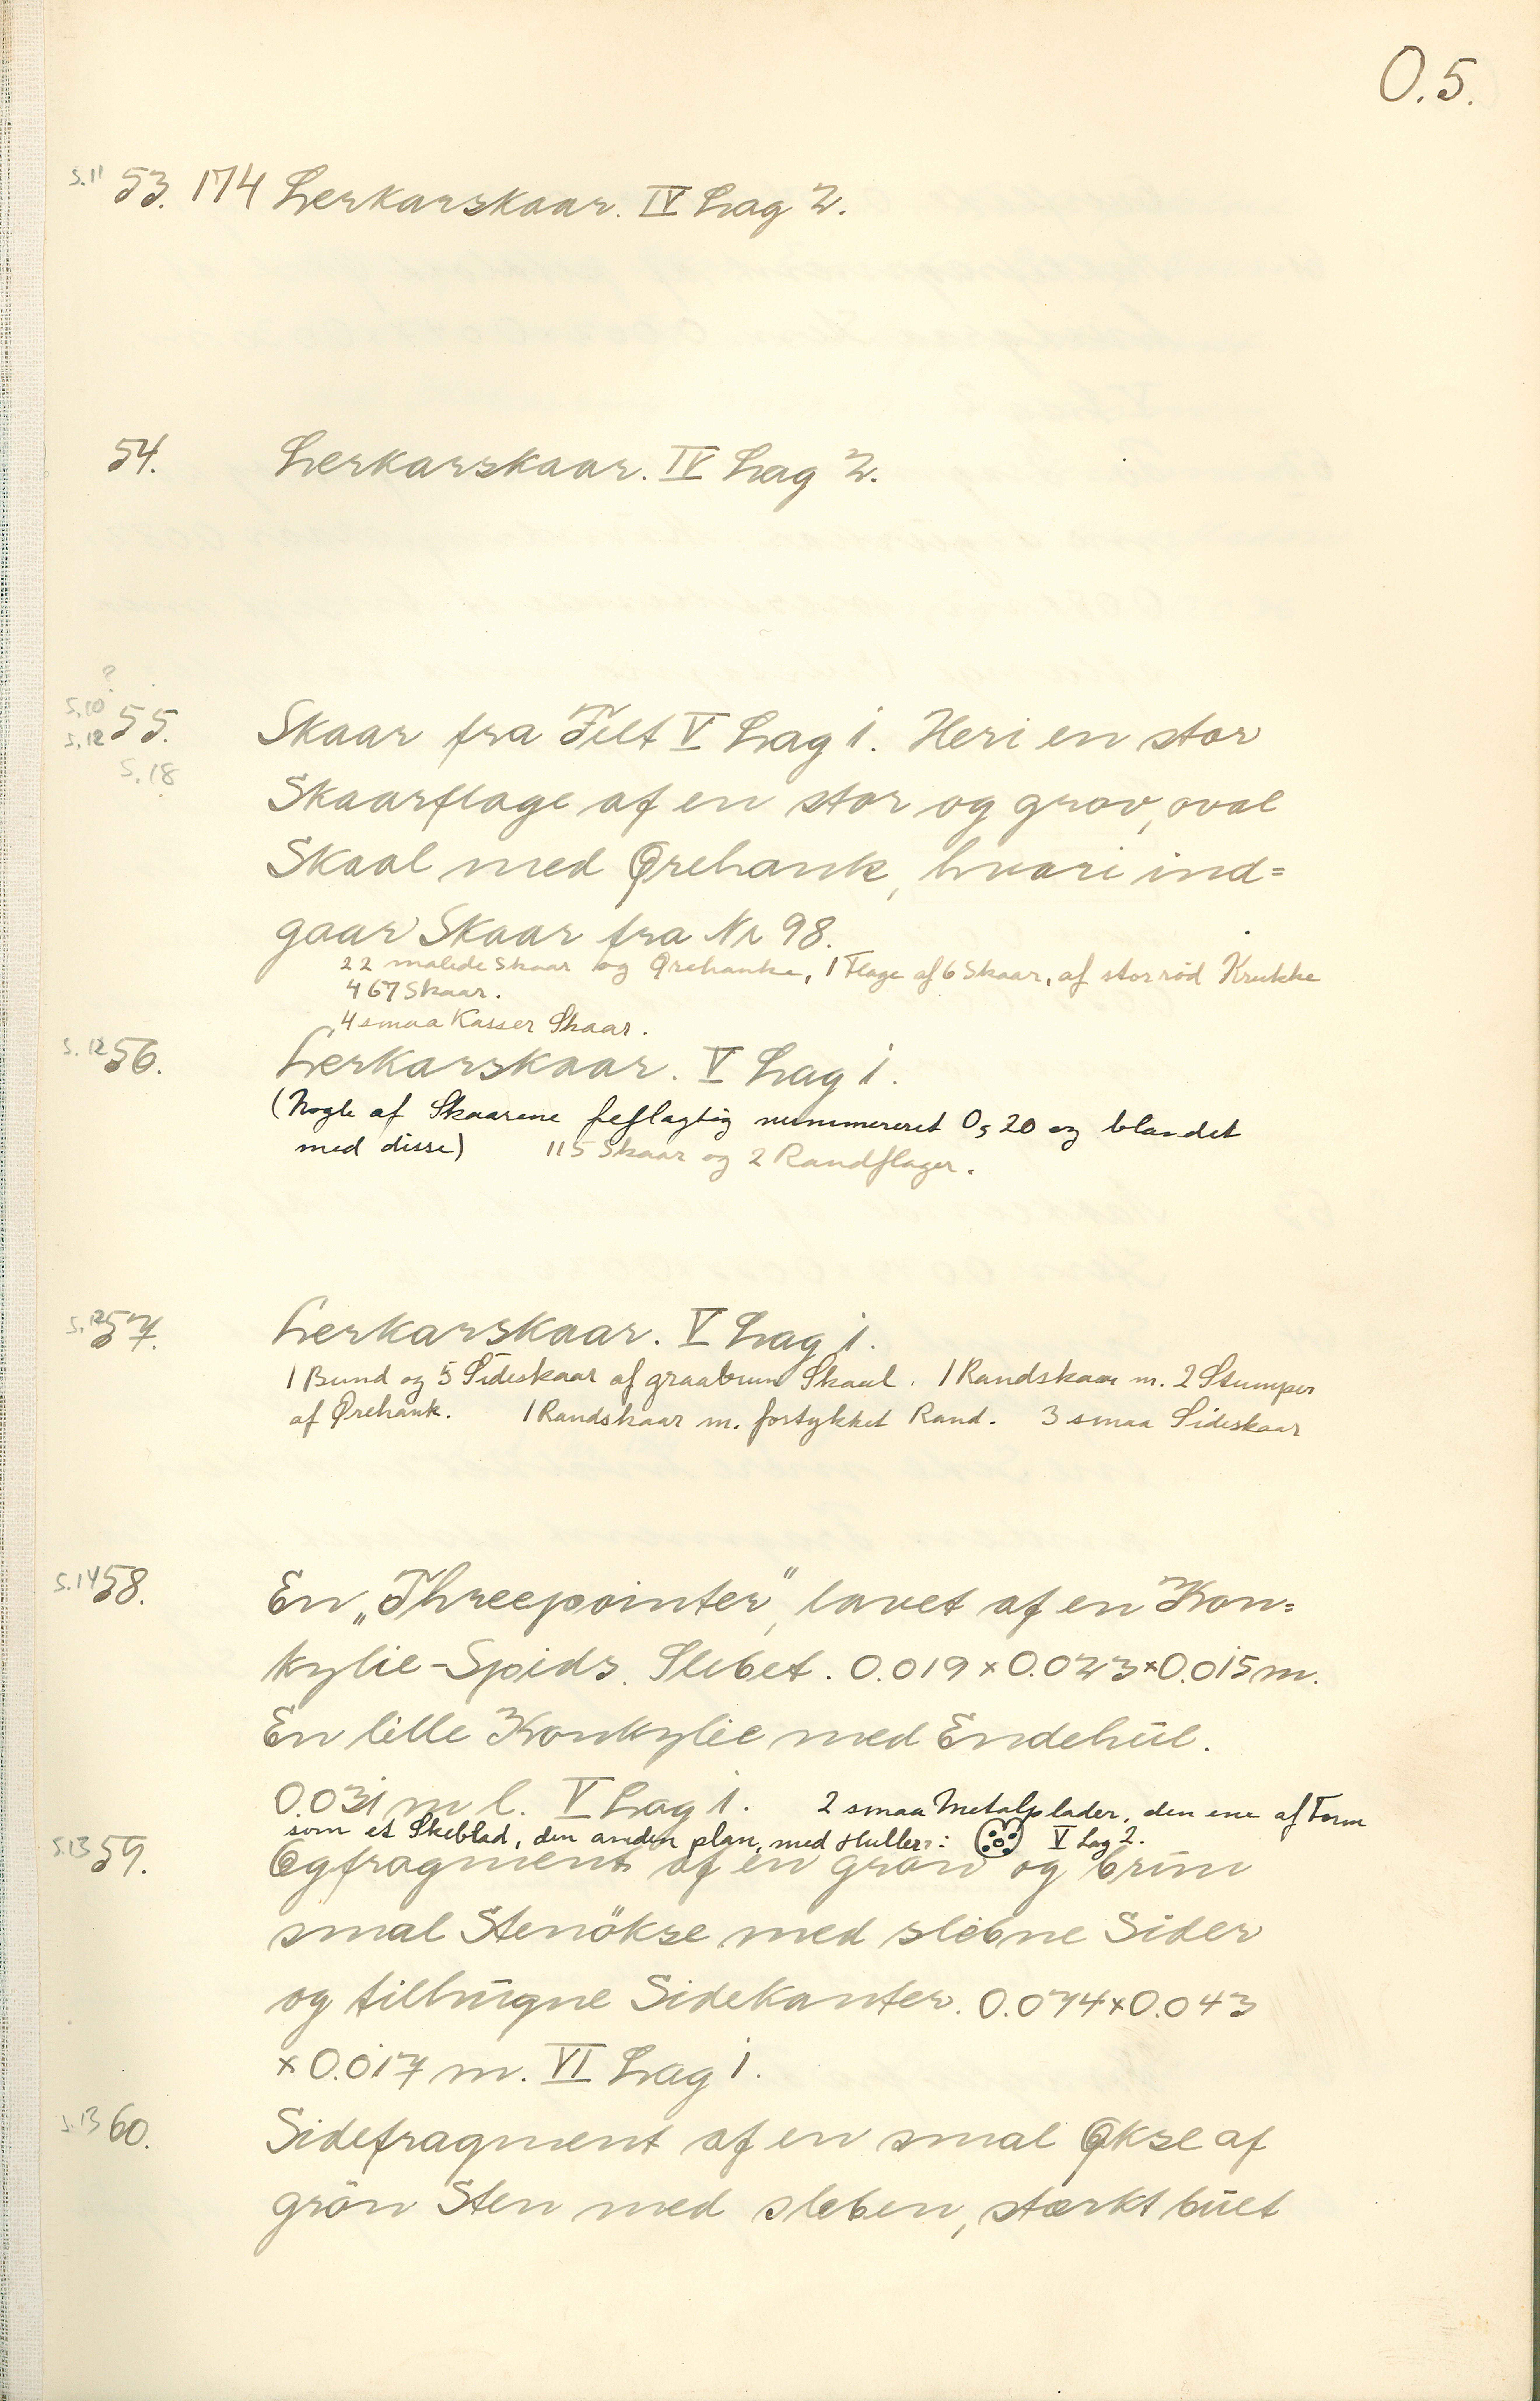 O.5.
S.11 53. 174 Lerkarskaar. IV Lag 2.
54. Lerkarskaar. IV Lag 2.
?
S.10 55. Skaar fra Felt V Lag 1. Heri en stor
S.12
S.18
Skaarflage af en stor og grov, oval
Skaal med Ørehank, hvori ind=
gaar Skaar fra Nr 98.
22 malede Skaar og Ørehanke, 1 Flage af 6 Skaar, af stor rød Krukke
467 Skaar.
4 smaa Kasser Skaar.
S.12 56. Lerkarskaar. V Lag 1.
(Nogle af Skaarene fejlagtig nummereret O, 20 og blandet
med disse) 115 Skaar og 2 Randflager.
S.12 57. Lerkarskaar. V Lag 1.
1 Bund og 5 Sideskaar af graabrun Skaal. 1 Randskaar m. 2 Stumper
af Ørehank. 1 Randskaar m. fortykket Rand. 3 smaa Sideskaar
S.14 58. En „Threepointer", lavet af en Kon=
kylie-Spids. Slebet. 0.019 x 0.023 x 0.015 m.
En lille Konkylie med Endehul.
0.031 m l. V Lag 1. 2 smaa Metalplader, den ene af Form
som et Skeblad, den anden plan, med Huller: V Lag 2.
S.13 59. Ægfragment af en grøn og brun
smal Stenökse med slebne Sider
og tilhugne Sidekanter. 0.074 x 0.043
x 0.017 m. VI Lag 1.
S.13 60. Sidefragment af en smal Økse af
grön Sten med sleben, stærkt buet